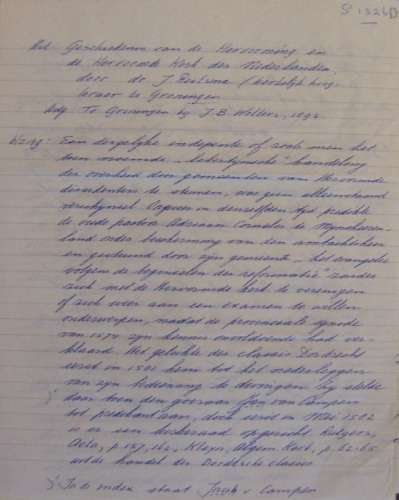 S 1326D
Uit: Geschiedenis van de Hervorming en
de Hervormde Kerk der Nederlanden,
door dr. J. Reitsma / Kerkelijk hoog-
leraar te Groningen
Uitg. Te Groningen bij J.B. Wolters, 1893.
blz 179: Een dergelijke independente of zoals men het
toen noemde "Libertijnsche" handeling
der overheid door gemeenten van Hervormde
te vormen, was geen alleenstaand
verschijnsel. Ongeveer in denzelfden tijd predikte
de oude pastoor Adriaan Cornelisz te Mijnsheeren-
land onder bescherming van den ambachtsheer
en gesteund door zijn gemeente "het evangelie
volgens de beginselen der reformatie" zonder
zich met de Hervormde kerk te vereenigen
of zich weer aan een examen te willen
onderwerpen, nadat de provinciale synode
van 1574 zijn kennis onvoldoende had ver-
klaard. Het gelukte der classis Dordrecht
eerst in 1581 hem tot het nederleggen
van zijn bediening te dwingen. Zij stelde
daar toen den Jan van Campen
tot predikant aan, doch eerst in Mei 1582
is er een kerkeraad opgericht. Rutgers,
Acta, p 157, 162, Kleyn, Algem. Kerk, p. 62-65
uit de handel. der Dordtsche classis
In de index staat Jacob v. Campen